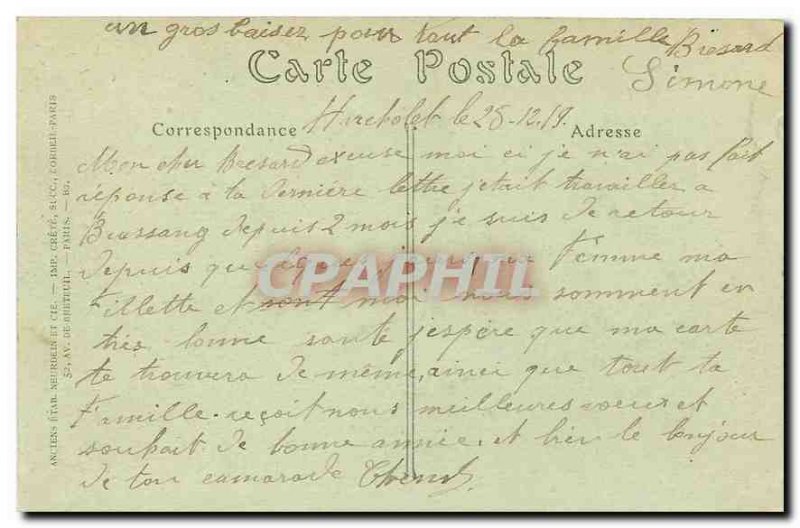 un gros baiser pour tout la famille Biesard
Simone
Carte Postale
Correspondance le 25-12.19. Adresse
Mon cher Biesard excuse moi ci je n'ai pas fait
réponse à ta dernière lettre j'etait travailler a
Bussang depuis 2 mois je suis de retour
depuis quelque jours ma Femme ma
Fillette et sont moi nous somment en
très bonne santé j'espère que ma carte
te trouvera de même, ainci que tout ta
Famille. reçoit nous meilleures voeux et
souhait de bonne année. et bien le bonjour
de ton camarade
CPAPHIL
ANCIENS ÉTAB. NEURDEIN ET CIE. — IMP. CRÉTÉ, SUCC., CORBEIL-PARIS
52, AV. DE BRETEUIL. — PARIS. —